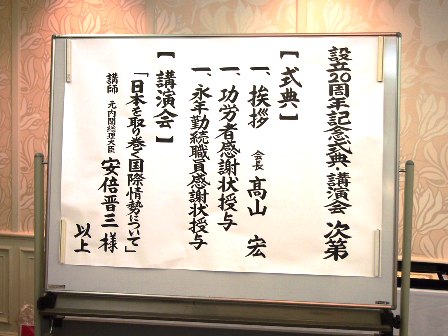 設立20周年記念式典・講演会 次第
【式典】
一、挨拶 会長 髙山 宏
一、功労者感謝状授与
一、永年勤続職員感謝状授与
【講演会】
「日本を取り巻く国際情勢について」
講師 元内閣総理大臣 安倍晋三 様
以上